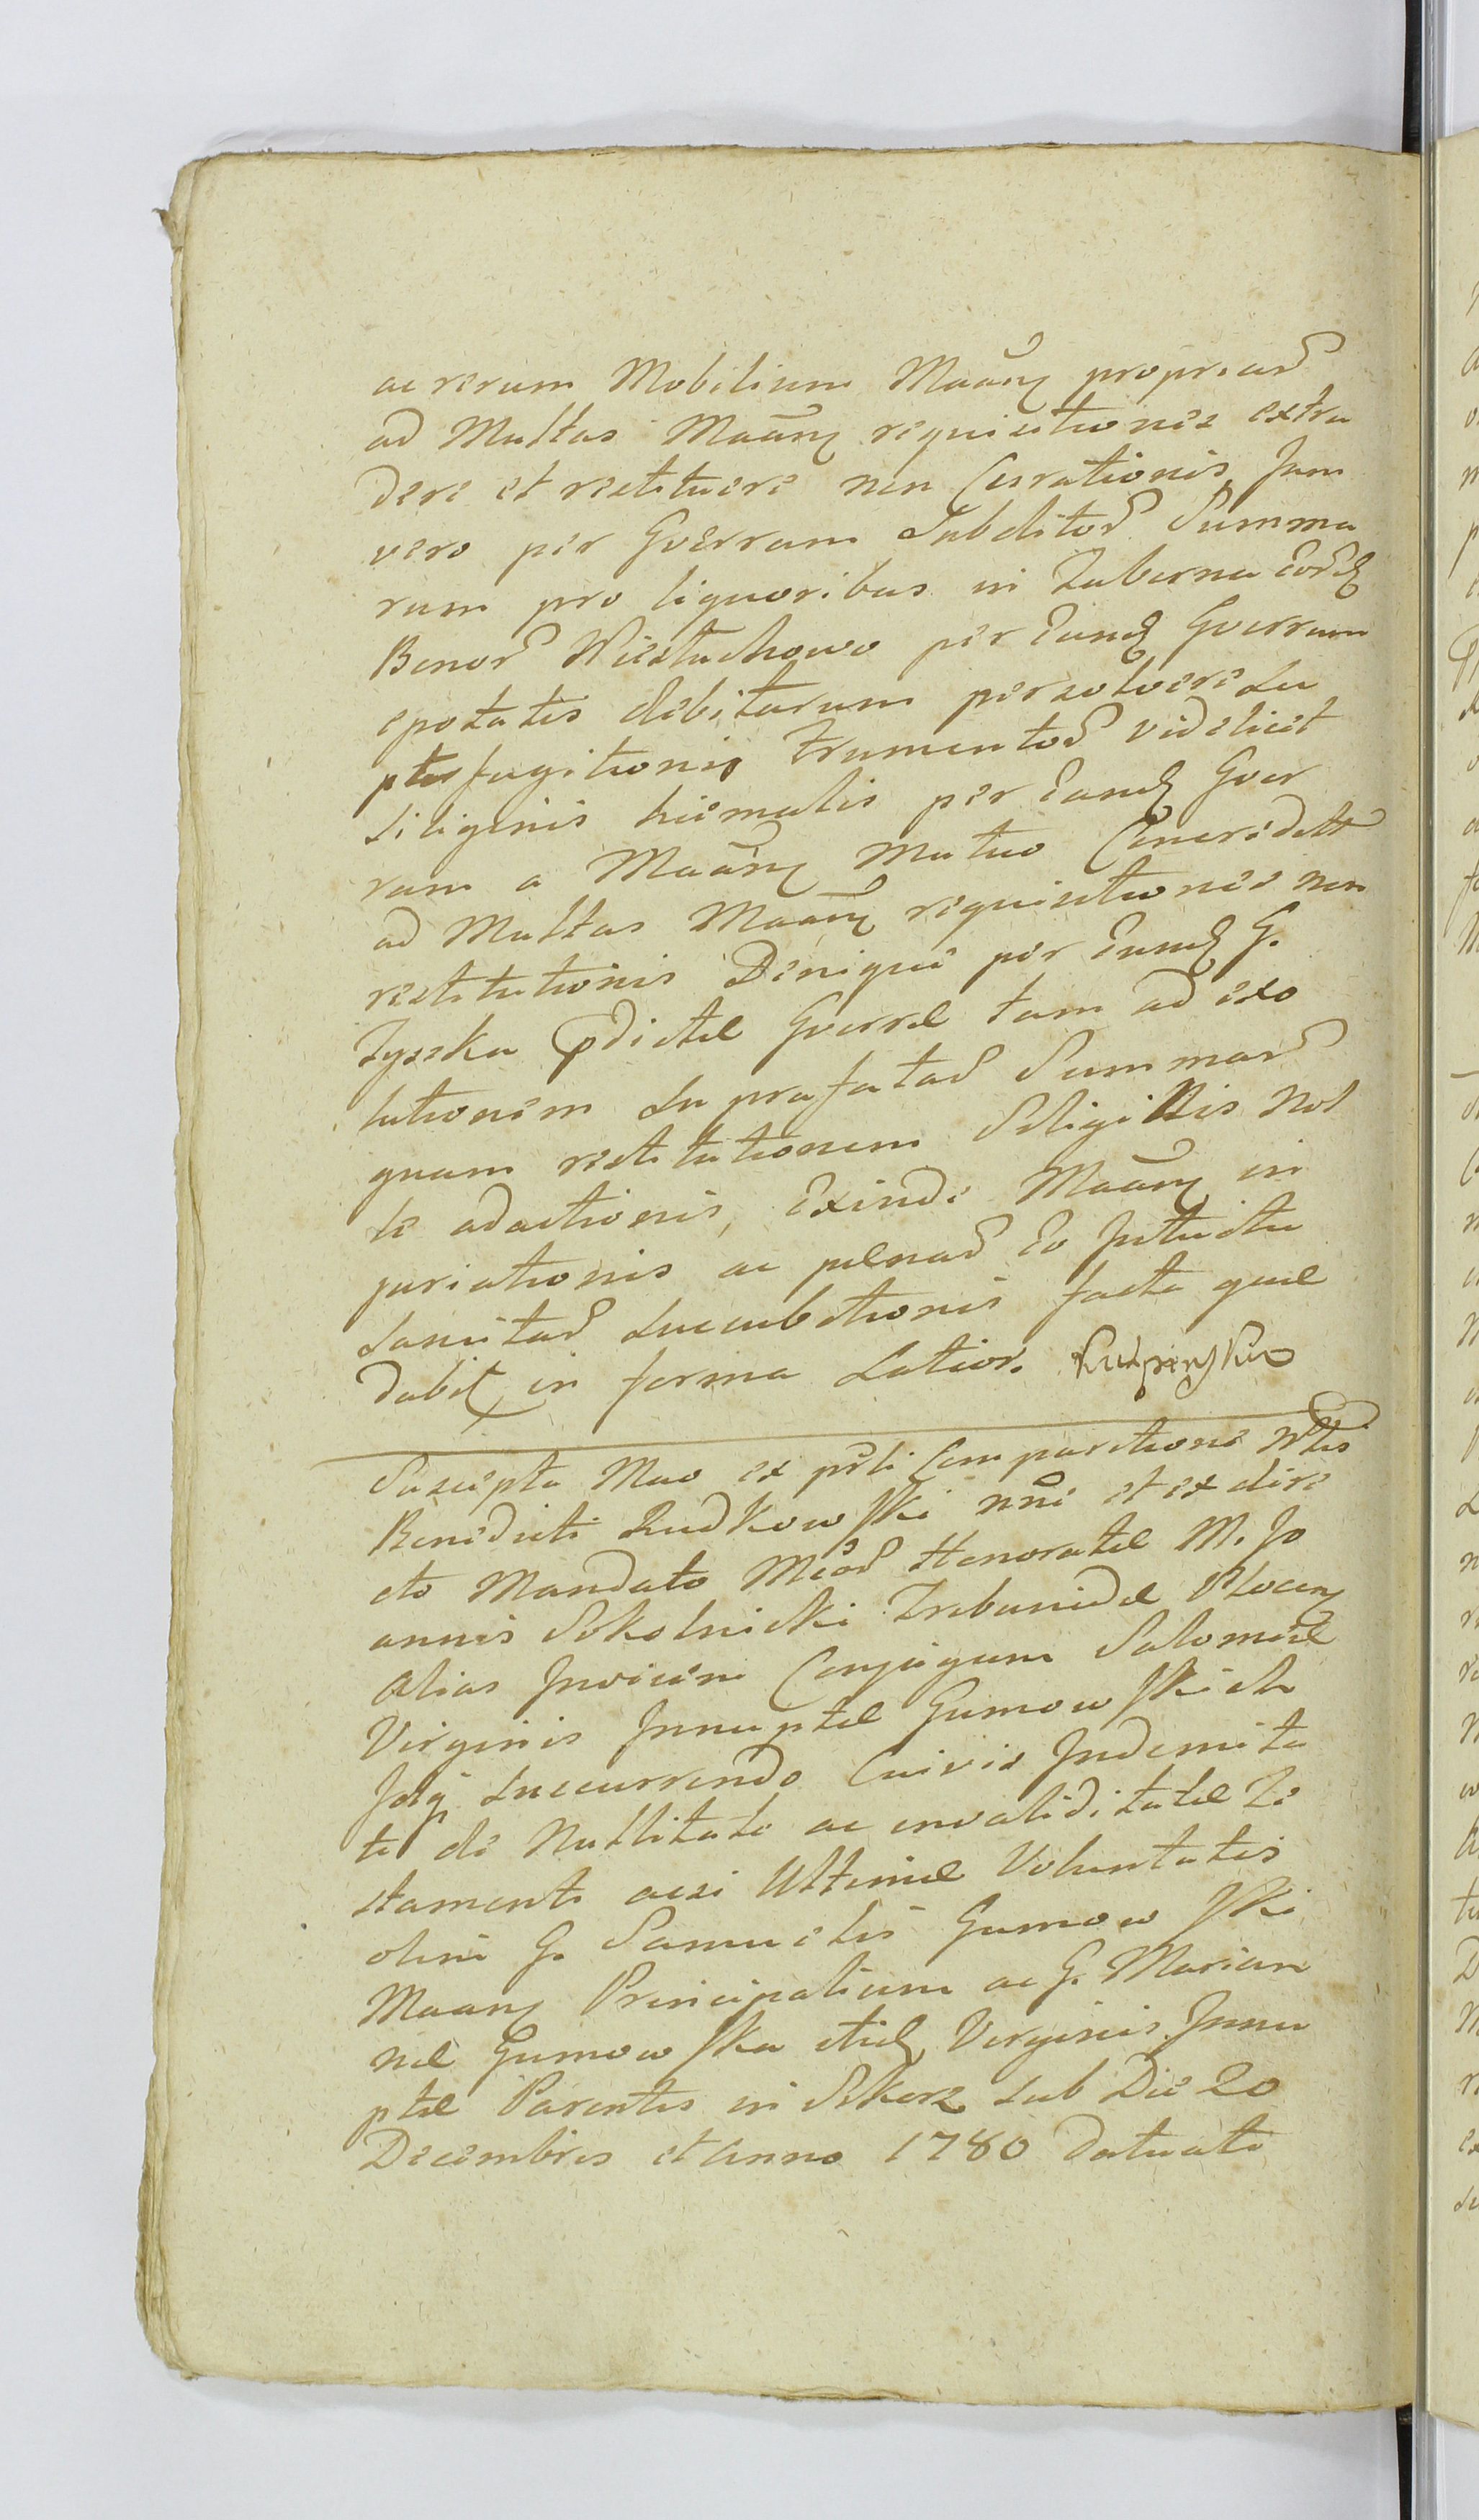 ac rerum Mobilium Maañ propriar
ad Multas Maañ requisitiones extra
dere et restituere non Curationis Jam
vero per Gverram Subditor Summa
rum pro liquoribus in Taberna Eor
Bonor Wiestuchowo per Eund Gverram
epotatis debitarum persolvere Su
pterfugitionis frumentor videlicet
siliginis hiemalis per Eand Gver
ram a Maañ mutuo Concredit
ad Multas Maañ requisitiones non
restitutionis Denique per Eund G.
Zyska pdictæ Gverræ tam ad exo
lutionem Suprafatar Summar
quam restitutionem Siliginis nol
le adactionis, Exinde Maañ in
juriationis ac pœnar Eo Intuitu
sancitar succubitionis facta quæ
dabit in forma Latiori
Suscepta Mao ex psti Comparitione Mtis
Benedicti Rudkowski nni et ex dire
cto Mandato Mcor Honoratæ M. Jo
annis Sokolnicki Tribunidæ Plocen
alias Invicem Conjugum Salomeæ
Virginis Innuptæ Gumowskich
Idq succurrendo Cuivis Indemnita
ti de Nullitate ac invaliditate Te
stamenti acsi Ultimæ Voluntatis
olim G. Samuelis Gumowski
Maañ Principalium ac G. Marian
næ Gumowska itid Virginis Innu
ptæ Parentis in Sikorz sub Die 20
Decembris et anno 1780 datuati